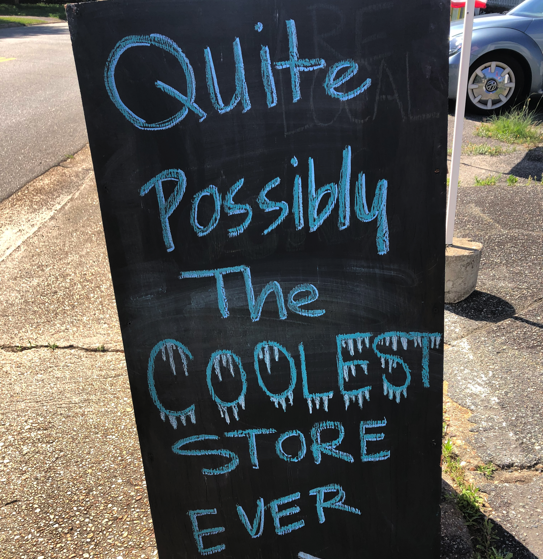 Quite
Possibly
The
COOLEST
STORE
EVER